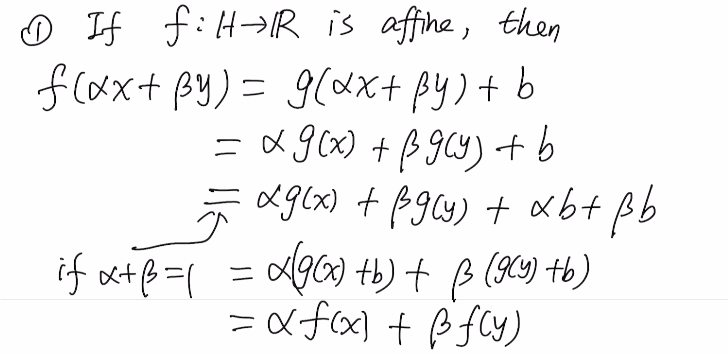 ① If f: H→ℝ is affine, then
f(αx + βy) = g(αx + βy) + b
= αg(x) + βg(y) + b
= αg(x) + βg(y) + αb + βb
if α+β=1 = α(g(x) + b) + β(g(y) + b)
= αf(x) + βf(y)